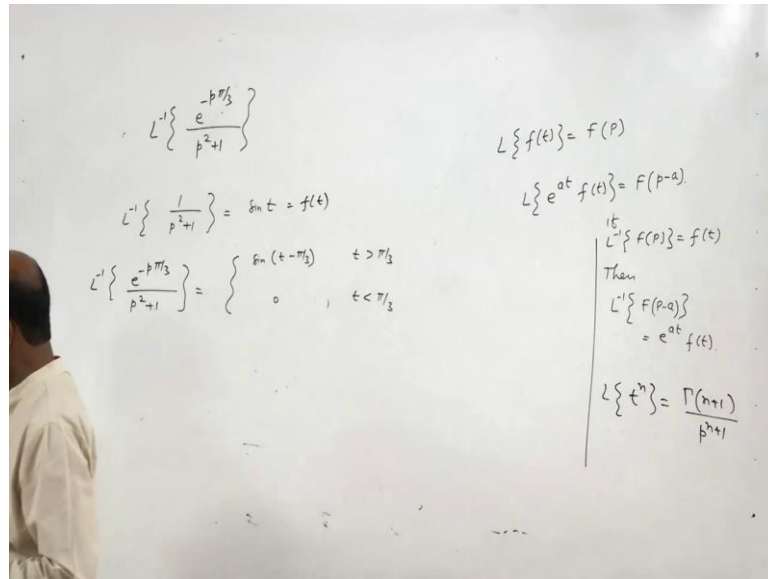 L⁻¹{ e^(-pπ/3) / (p²+1) }
L⁻¹{ 1 / (p²+1) } = sin t = f(t)
L⁻¹{ e^(-pπ/3) / (p²+1) } = { sin (t-π/3) t > π/3
0 , t < π/3
L{f(t)} = F(p)
L{e^(at) f(t)} = F(p-a).
if
L⁻¹{F(p)} = f(t)
Then
L⁻¹{F(p-a)}
= e^(at) f(t).
L{tⁿ} = Γ(n+1) / p^(n+1)